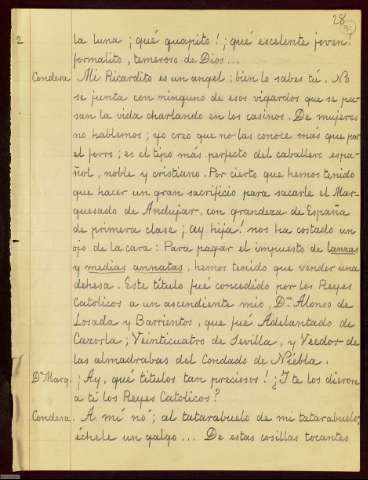 28
2 la luna; ¡qué guapito!; ¡qué excelente joven!
formalito, temeroso de Dios...
Condesa. Mi Ricardito es un angel; bien lo sabes tú. No
se junta con ninguno de esos vigardos que se pa-
san la vida charlando en los casinos. De mujeres
no hablemos; yo creo que no las conoce más que por
el forro; es el tipo más perfecto del caballero espa-
ñol, noble y cristiano. Por cierto que hemos tenido
que hacer un gran sacrificio para sacarle el Mar-
quesado de Andujar, con grandeza de España
de primera clase; ¡ay hija! nos ha costado un
ojo de la cara: Para pagar el impuesto de lanzas
y medias annatas, hemos tenido que vender una
dehesa. Este título fué concedido por los Reyes
Catolicos a un ascendiente mio, Dn. Alonso de
Losada y Barrientos, que fué Adelantado de
Cazorla; Veinticuatro de Sevilla, y Veedor de
las almadrabas del Condado de Niebla.
Dª Marq. ¡Ay, qué titulos tan preciosos! ¿Y te los dieron
a tí los Reyes Catolicos?
Condesa. A mí nó; al tatarabuelo de mi tatarabuelo;
échele un galgo... De estas cosillas tocantes